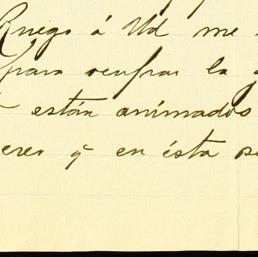 Ruego á Ud me
para ocupar la
están animados
y en ésta